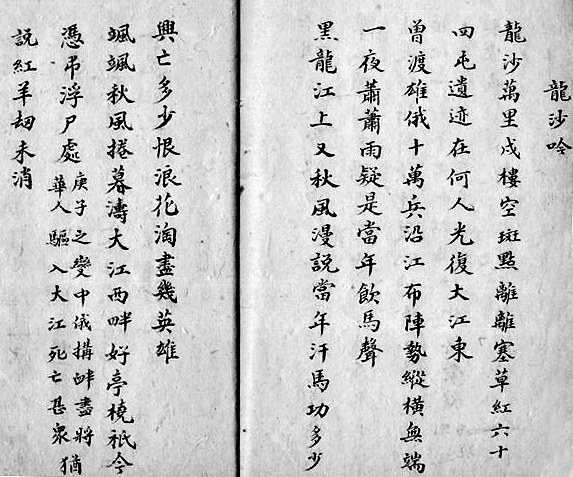 龍沙吟
龍沙萬里戍樓空斑點離離塞草紅六十
四屯遺迹在何人光復大江東
曾渡雄俄十萬兵沿江布陣勢縱橫無端
一夜蕭蕭雨疑是當年飲馬聲
黑龍江上又秋風漫說當年汗馬功多少
興亡多少恨浪花淘盡幾英雄
颯颯秋風捲暮濤大江西畔好亭橈祇今
憑弔浮尸處庚子之變中俄搆衅盡將華人驅入大江死亡甚衆猶
説紅羊刼未消